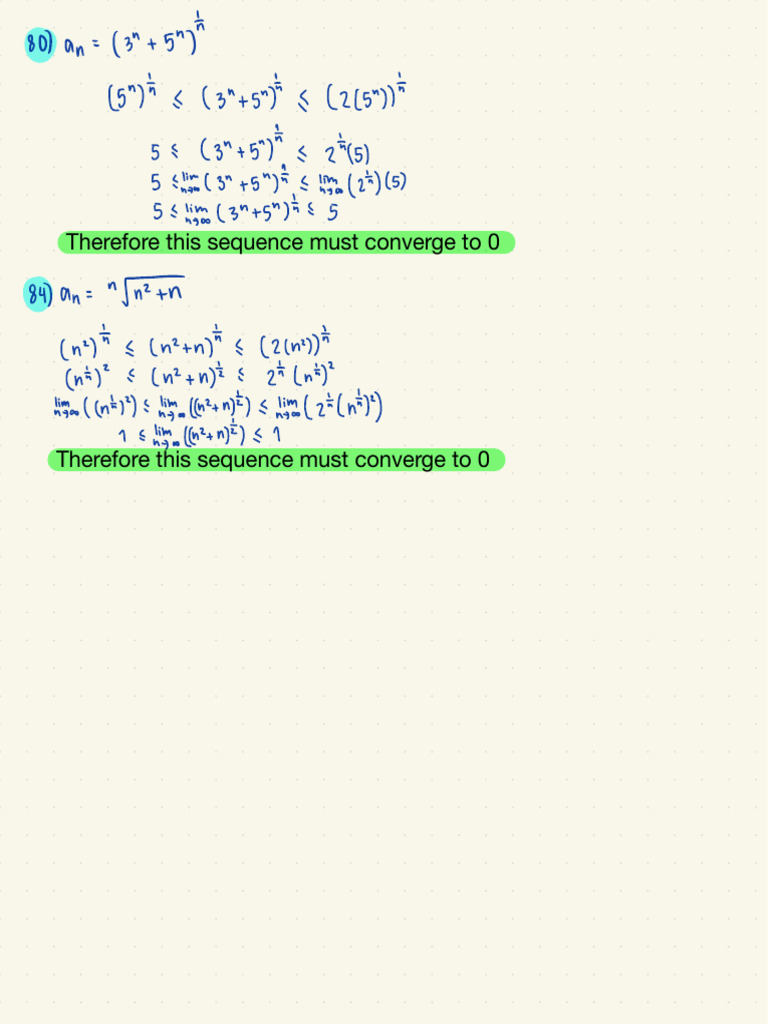 80) aₙ = (3ⁿ + 5ⁿ)^(1/n)
(5ⁿ)^(1/n) ≤ (3ⁿ + 5ⁿ)^(1/n) ≤ (2(5ⁿ))^(1/n)
5 ≤ (3ⁿ + 5ⁿ)^(1/n) ≤ 2^(1/n)(5)
5 ≤ lim n→∞ (3ⁿ + 5ⁿ)^(1/n) ≤ lim n→∞ (2^(1/n))(5)
5 ≤ lim n→∞ (3ⁿ + 5ⁿ)^(1/n) ≤ 5
Therefore this sequence must converge to 0
84) aₙ = ⁿ√(n² + n)
(n²)^(1/n) ≤ (n² + n)^(1/n) ≤ (2(n²))^(1/n)
(n^(1/n))² ≤ (n² + n)^(1/2) ≤ 2^(1/n) (n^(1/n))²
lim n→∞ ((n^(1/n))²) ≤ lim n→∞ ((n² + n)^(1/2)) ≤ lim n→∞ (2^(1/n) (n^(1/n))²)
1 ≤ lim n→∞ ((n² + n)^(1/2)) ≤ 1
Therefore this sequence must converge to 0